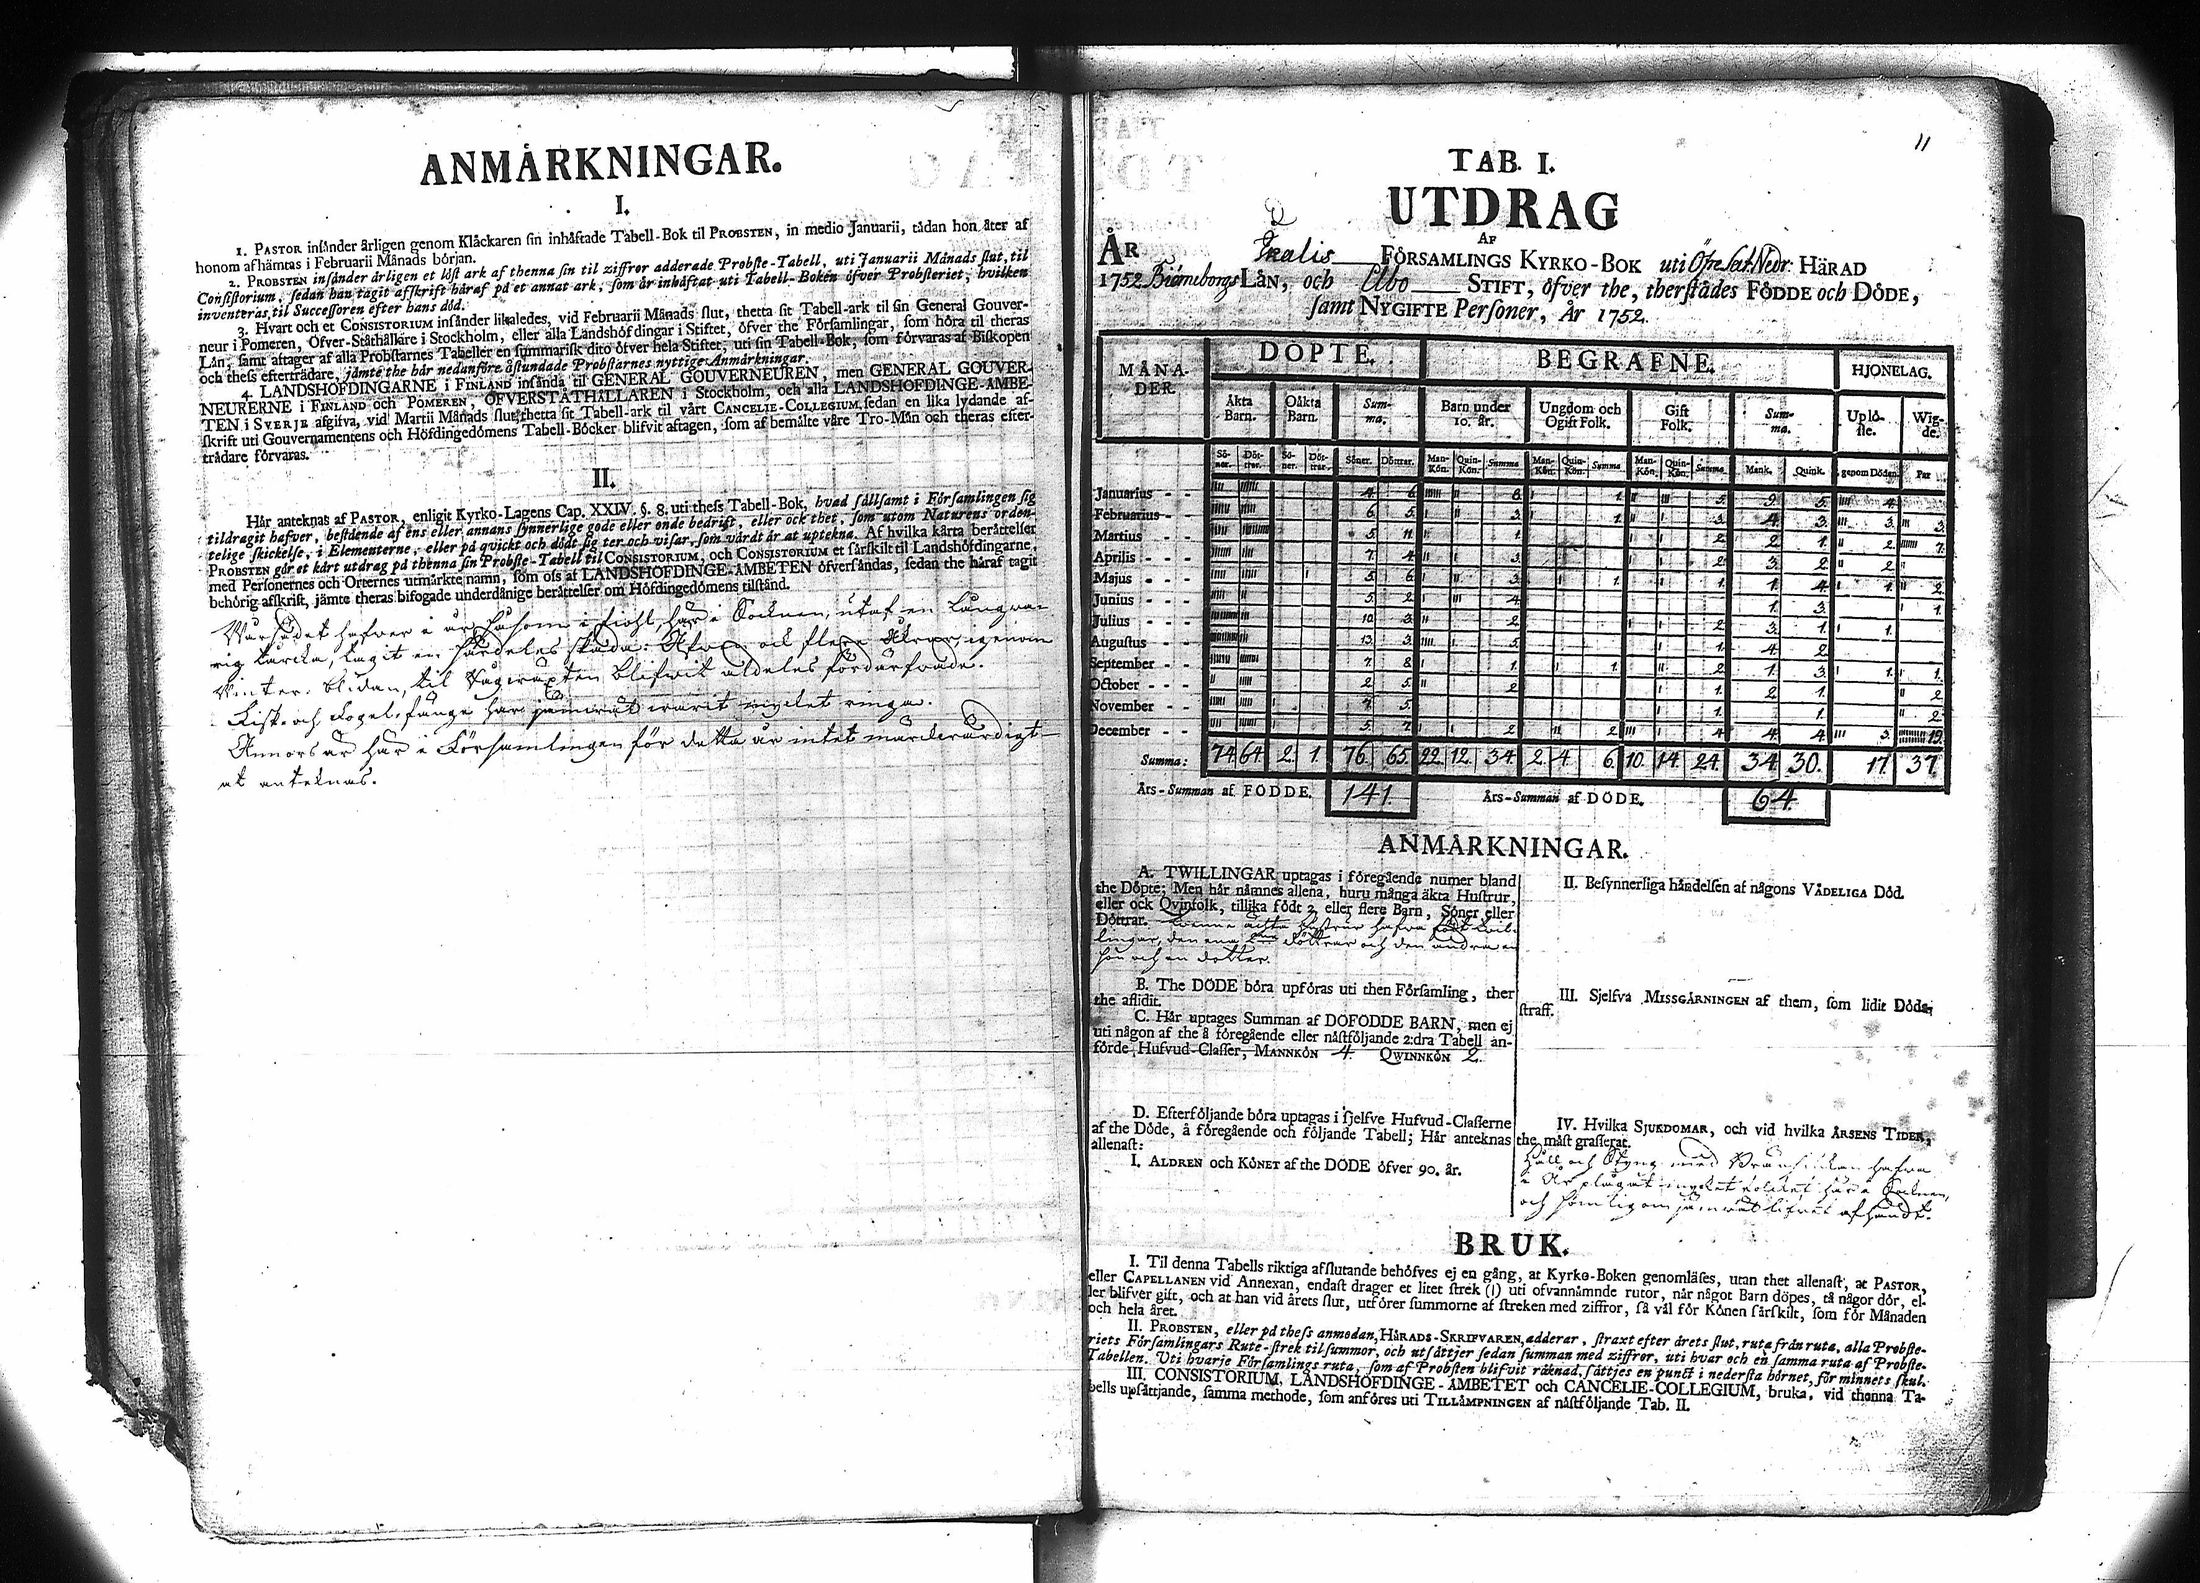 ANMÅRKNINGAR.
I.
1. PASTOR insånder årligen genom Klåckaren sin inhåftade Tabell-Bok til PROBSTEN, in medio Januarii, tådan hon åter af
honom afhåmtas i Februarii Månads början.
2. PROBSTEN insånder årligen et löst ark af thenna sin til ziffror adderade Probste-Tabell, uti Januarii Månads slut, til
Consistorium, sedan han tagit afskrift håraf på et annat ark, som år inhåftat uti Tabell-Boken öfver Probsteriet, hvilken
inventeras til Successoren efter hans död.
3. Hvart och et CONSISTORIUM insånder likaledes, vid Februarii Månads slut, thetta sit Tabell-ark til sin General Gouver-
neur i Pomeren, Öfver-Ståthållare i Stockholm, eller alla Landshöfdingar i Stiftet, öfver the Församlingar, som höra til theras
Lån, samt aftager af alla Probstarnes Tabeller en summarisk dito öfver hela Stiftet, uti sin Tabell-Bok, som förvaras af Biskopen
och thess eftertrådare, jåmte the hår nedanföre åstundade Probstarnes nyttige Anmårkningar.
4. LANDSHÖFDINGARNE i FINLAND insånda til GENERAL GOUVERNEUREN, men GENERAL GOUVER-
NEURERNE i FINLAND och POMEREN, ÖFVERSTÅTHÅLLAREN i Stockholm, och alla LANDSHÖFDINGE-ÅMBE-
TEN i SVERJE afgifva, vid Martii Månads slut, thetta sit Tabell-ark til vårt CANCELIE-COLLEGIUM, sedan en lika lydande af-
skrift uti Gouvernamentens och Höfdingedömens Tabell-Böcker blifvit aftagen, som af bemålte våre Tro-Mån och theras efter-
trådare förvaras.
II.
Hår anteknas af PASTOR, enligit Kyrko-Lagens Cap. XXIV. §. 8. uti thess Tabell-Bok, hvad sållsamt i Församlingen sig
tildragit hafver, bestående af ens eller annans synnerlige gode eller onde bedrift, eller ock thet, som utom Naturens orden-
telige skickelse, i Elementerne, eller på qvickt och dödt sig ter och visar, som vårdt år at uptekna. Af hvilka kårta beråttelser
PROBSTEN gör et kårt utdrag på thenna sin Probste-Tabell til CONSISTORIUM, och CONSISTORIUM et sårskilt til Landshöfdingarne,
med Personernes och Orternes utmårkte namn, som oss af LANDSHÖFDINGE-ÅMBETEN öfversåndas, sedan the håraf tagit
behörig afskrift, jåmte theras bifogade underdånige beråttelser om Höfdingedömens tilstånd.
Vårsädet hafver i år, såsom i fiohl, här i Socknen, utaf en långva-
rig torcka, tagit en
Vinter blidan, til blifwit aldeles fördärfvade.
Fisk- och Fogel-fånge har jemwäl warit mycket ringa.
Annors är här i Församlingen för detta år intet märckwärdigt
at anteknas.
11
TAB. I.
UTDRAG
AF
ÅR Ikalis FÖRSAMLINGS KYRKO-BOK uti Öfre Sat. Nedr: HÄRAD
1752 Biörneborgs LÅN, och Åbo STIFT, öfver the, therstådes FÖDDE och DÖDE,
samt NYGIFTE Personer, År 1752.
MÅNA-DER. DÖPTE. BEGRAFNE. HJONELAG.
Åkta Barn. Oåkta Barn. Summa. Barn under 10. år. Ungdom och Ogift Folk. Gift Folk. Summa. Uplöste. Wigde.
Söner. Döttrar. Söner. Döttrar. Söner. Döttrar. Man-Kön. Quin-Kön. Summa Man-Kön. Quin-Kön. Summa Man-Kön. Quin-Kön. Summa Mank. Quink. genom Döden. Par
Januarius - - 4. 6. 8. 1. 5. 9. 5. 4.
Februarius - - 6. 5. 3. 1. 3. 4. 3. 3. 3.
Martius - - 5. 11. 1. 2. 2. 1. 2. 7.
Aprilis - - 7. 4. 3. 2. 3. 2. 2.
Majus - - 5. 6. 3. 1. 1. 1. 4. 1. 2.
Junius - - 5. 2. 4. 1. 3. 1.
Julius - - 10. 3. 2. 2. 3. 1. 1.
Augustus - - 13. 3. 5. 1. 4. 2.
September - - 7. 8. 1. 1. 2. 1. 3. 1. 1.
October - - 2. 5. 2. 1. 2. 1. 2.
November - - 7. 5. 1. 1. 2.
December - - 5. 7. 2. 2. 4. 4. 4. 3. 19.
Summa: 74 64. 2. 1. 76. 65. 22. 12. 34. 2. 4. 6. 10. 14. 24. 34. 30. 17. 37.
Års-Summan af FÖDDE. 141. Års-Summan af DÖDE. 64.
ANMÅRKNINGAR.
A. TWILLINGAR uptagas i föregående numer bland
the Döpte; Men hår nåmnes allena, huru många åkta Hustrur,
eller ock Qvinfolk, tillika födt 2. eller flere Barn, Söner eller
Döttrar. Twenne ächta Hustrur hafva födt twil-
lingar, den ena 2ne döttrar och den andra en
son och en dotter.
B. The DÖDE böra upföras uti then Församling, ther
the aflidit.
C. Hår uptages Summan af DÖFÖDDE BARN, men ej
uti någon af the å föregående eller nåstföljande 2:dra Tabell an-
förde Hufvud-Classer, MANNKÖN 4. QWINNKÖN 2.
D. Efterföljande böra uptagas i sjelfve Hufvud-Classerne
af the Döde, å föregående och följande Tabell; Hår anteknas
allenast:
I. ÅLDREN och KÖNET af the DÖDE öfver 90. år.
II. Besynnerliga håndelsen af någons VÅDELIGA Död.
III. Sjelfva MISSGÅRNINGEN af them, som lidit Döds-
straff.
IV. Hvilka SJUKDOMAR, och vid hvilka ÅRSENS TIDER,
the måst grasserat.
Håll och Styng med Brännsiukan hafva
i År plågat mycket folcket här i Socknen,
och somligom jämwäl lifvet afhändt.
BRUK.
I. Til denna Tabells riktiga afslutande behöfves ej en gång, at Kyrko-Boken genomläses, utan thet allenast, at PASTOR,
eller CAPELLANEN vid Annexan, endast drager et litet strek (I) uti ofvannåmnde rutor, når något Barn döpes, tå någor dör, el-
ler blifver gift, och at han vid årets slut, utförer summorne af streken med ziffror, så vål för Könen sårskilt, som för Månaden
och hela året.
II. PROBSTEN, eller på thess anmodan, HÅRADS-SKRIFVAREN, adderar, straxt efter årets slut, ruta från ruta, alla Probste-
riets Församlingars Rute-strek til summor, och utsåttjer sedan summan med ziffror, uti hvar och en samma ruta af Probste-
Tabellen. Uti hvarje Församlings ruta, som af Probsten blifvit råknad, såttjes en punct i nedersta hörnet, för minnets skul.
III. CONSISTORIUM, LANDSHÖFDINGE-ÅMBETET och CANCELIE-COLLEGIUM, bruka, vid thenna Ta-
bells upsåttjande, samma methode, som anföres uti TILLÅMPNINGEN af nåstföljande Tab. II.